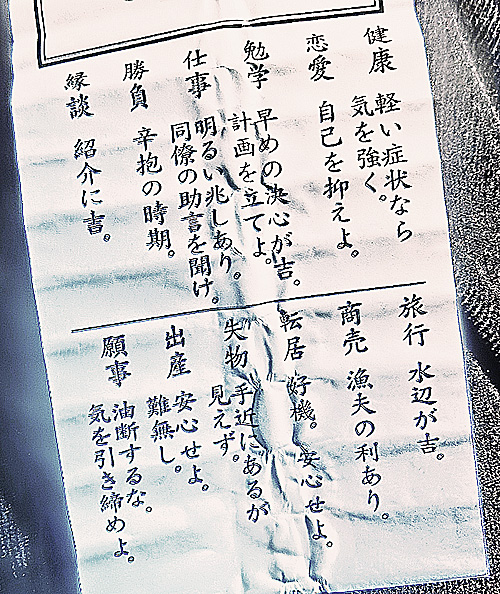 健康 軽い症状なら
気を強く。
恋愛 自己を抑えよ。
勉学 早めの決心が吉。
計画を立てよ。
仕事 明るい兆しあり。
同僚の助言を聞け。
勝負 辛抱の時期。
縁談 紹介に吉。
旅行 水辺が吉。
商売 漁夫の利あり。
転居 好機。安心せよ。
失物 手近にあるが
見えず。
出産 安心せよ。
難無し。
願事 油断するな。
気を引き締めよ。